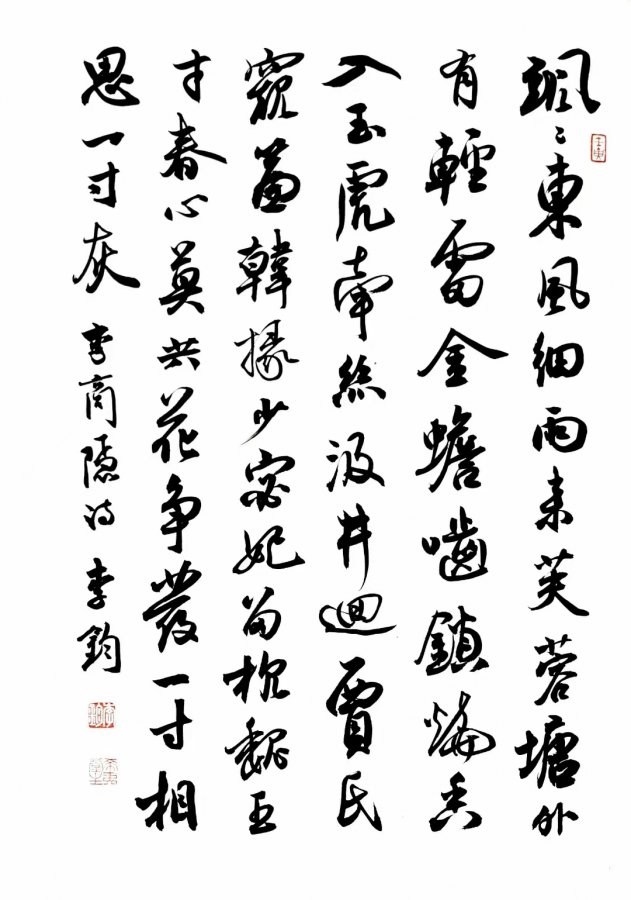 颯〻東風細雨來芙蓉塘外
有輕雷金蟾嚙鎖燒香
入玉虎牽絲汲井迴賈氏
窺簾韓掾少宓妃留枕魏王
才春心莫共花争發一寸相
思一寸灰 李商隱詩 李鈞